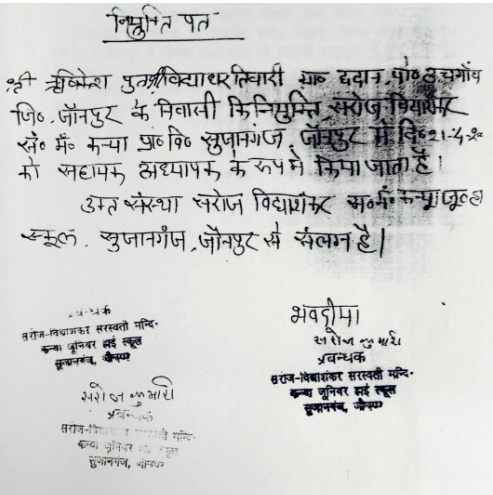 नियुक्ति पत्र
श्री ऋषिकेश पुत्र श्री विद्याधर तिवारी ग्रा० ददान, पो० ऊचगाँव
जि०, जौनपुर के निवासी कि नियुक्ति सरोज विद्याशंकर
स० मं० कन्या प्रा० वि० सुजानगंज, जौनपुर में दि०
को सहायक अध्यापक के रूप में किया जाता है।
उक्त संस्था सरोज विद्याशंकर स० मं० कन्या जू० हा०
स्कूल, सुजानगंज, जौनपुर से संलग्न है।
भवदीया
सरोज कुमारी
प्रबन्धक
सरोज-विद्याशंकर सरस्वती मन्दि-
कन्या जूनियर हाई स्कूल
सुजानगंज, जौनपुर
सरोज-विद्याशंकर सरस्वती मन्दि-
कन्या जूनियर हाई स्कूल
सुजानगंज, जौनपुर
सरोज कुमारी
प्रबन्धक
सरस्वती मन्दि-
कन्या जूनियर स्कूल
सुजानगंज, जौनपुर